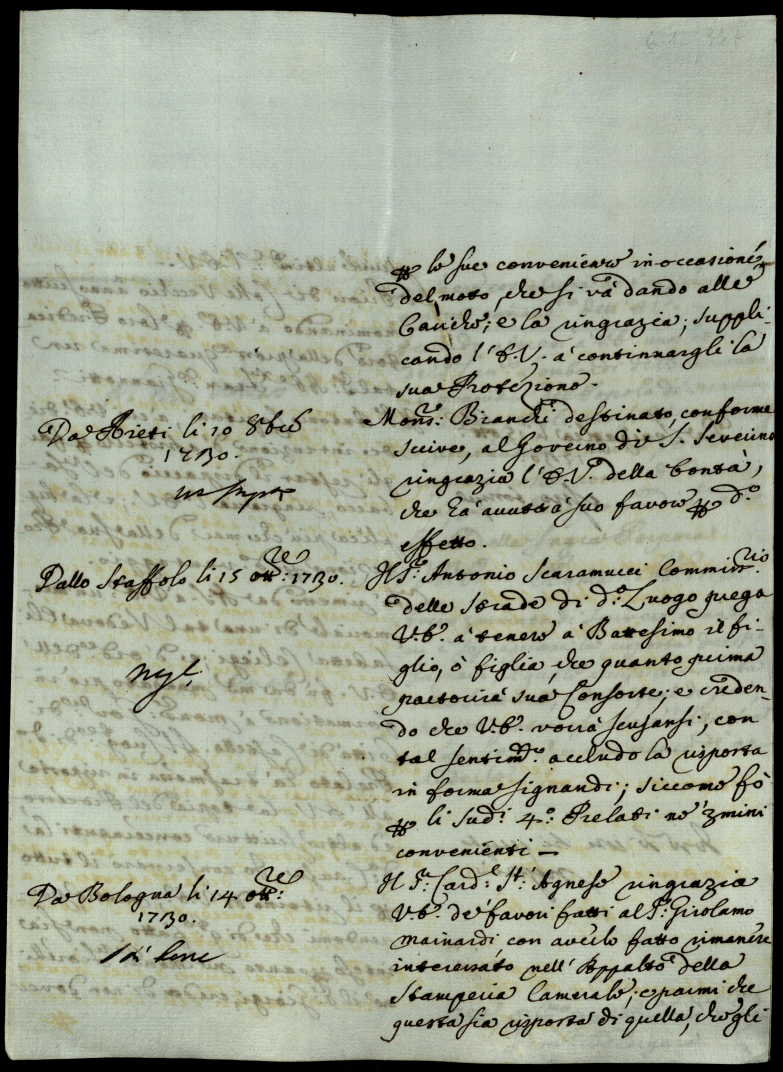 le sue convenienze in occasione
del moto, che si và dando alle
Cariche; e la ringrazia; suppli-
cando l'E.V. a continuargli la
sua Protezione.
Da Rieti li 10 8bre
1730.
Mons.r Bianchi destinato, conforme
scrive, al Governo di S. Severino
ringrazia l'E.V. della bontà,
che hà avuta à suo favore d.o
effetto.
Dallo Staffolo li 15 ott.re: 1730.
Il S.r Antonio Scaramucci Commiss.rio
delle Strade di d.o Luogo prega
V.E. à tenere à Battesimo il fi-
glio, ò figlia, che quanto prima
partorirà sua Consorte; e creden-
do che V.E. vorrà scusarsi, con
tal sentim.to accludo la risposta
in forma signandi; siccome fò
li sud.i 4.o Prelati ne'
convenienti —
Da Bologna li 14 ott.re:
1730.
Il S.r Card.l S.t' Agnese ringrazia
V.E. de' favori fatti al S.r Girolamo
Mainardi con averlo fatto rimanere
interessato nell'Appalto della
Stamperia Camerale; e parmi che
questa sia risposta di quella, che gli